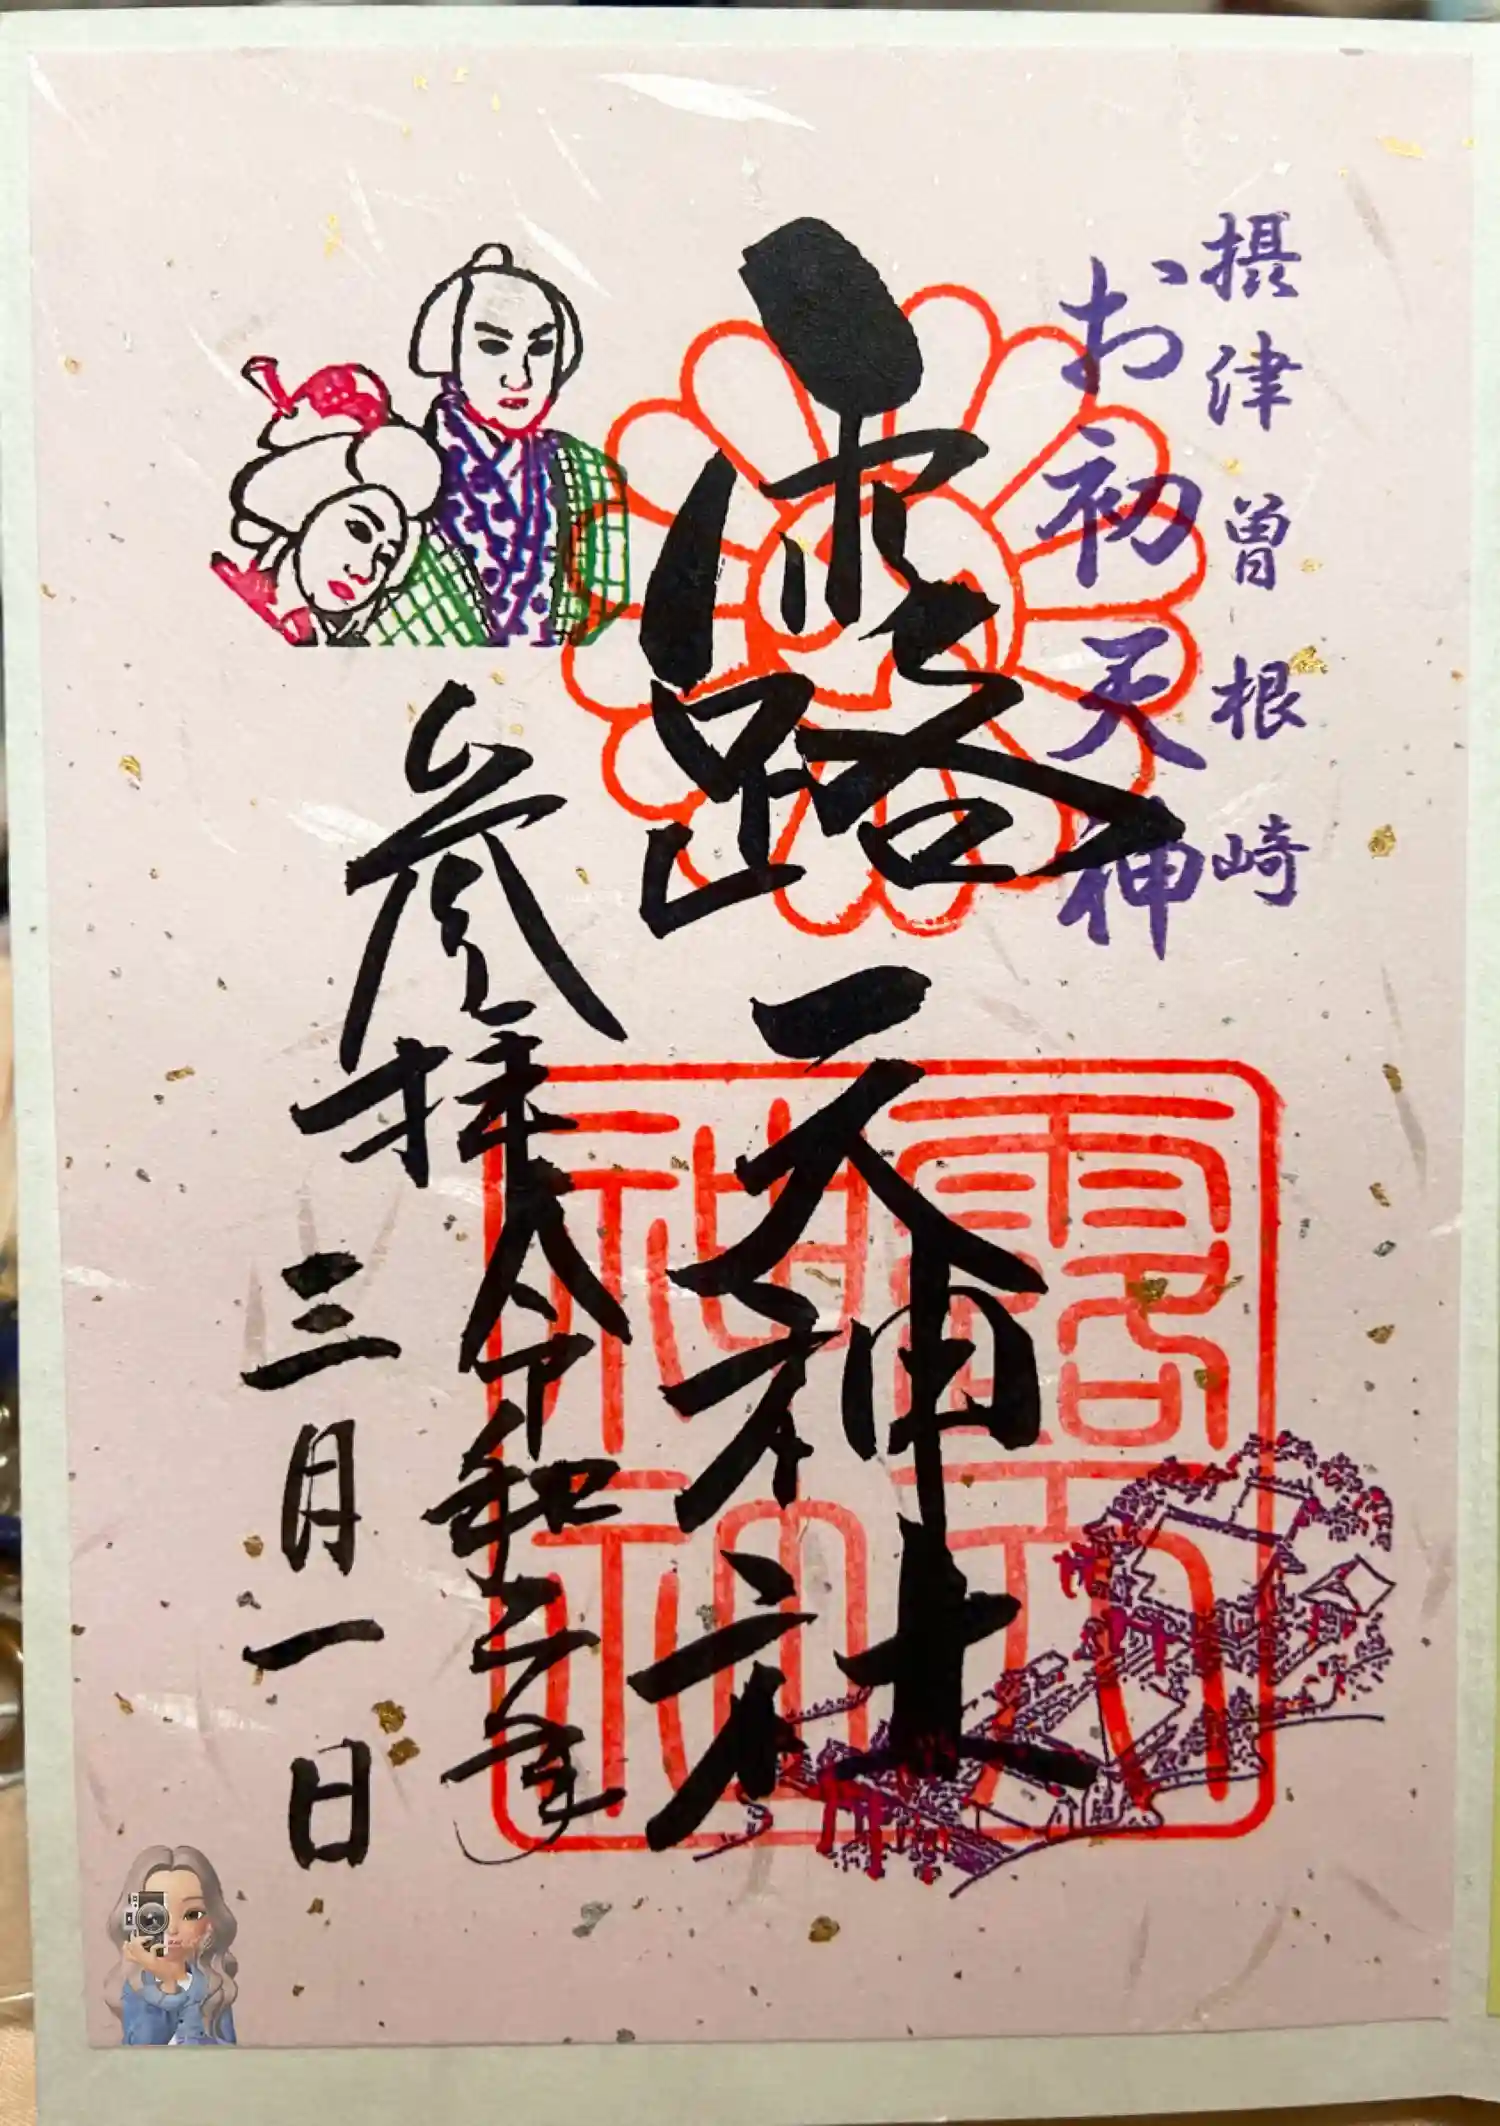 摂津曽根崎
お初天神
露天神社
参拝 令和二年
三月一日